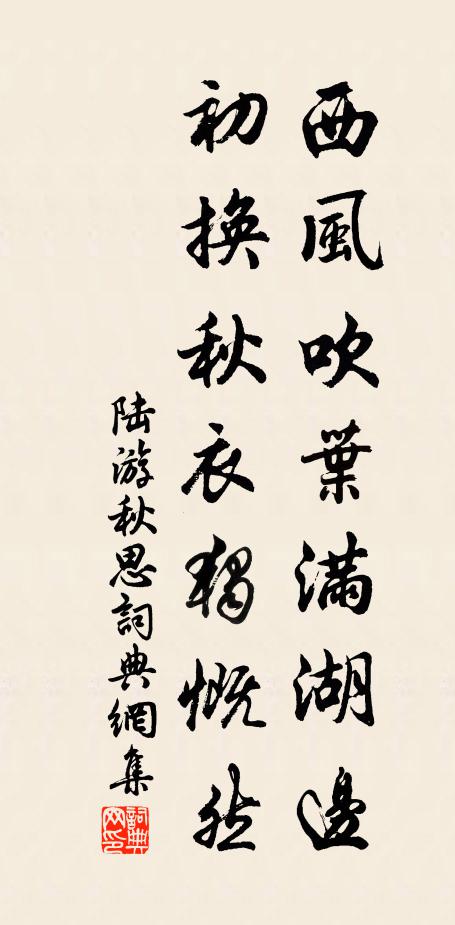 西風吹葉滿湖邊
初換秋衣獨慨然
陸游秋思詞典網集
詞典网印